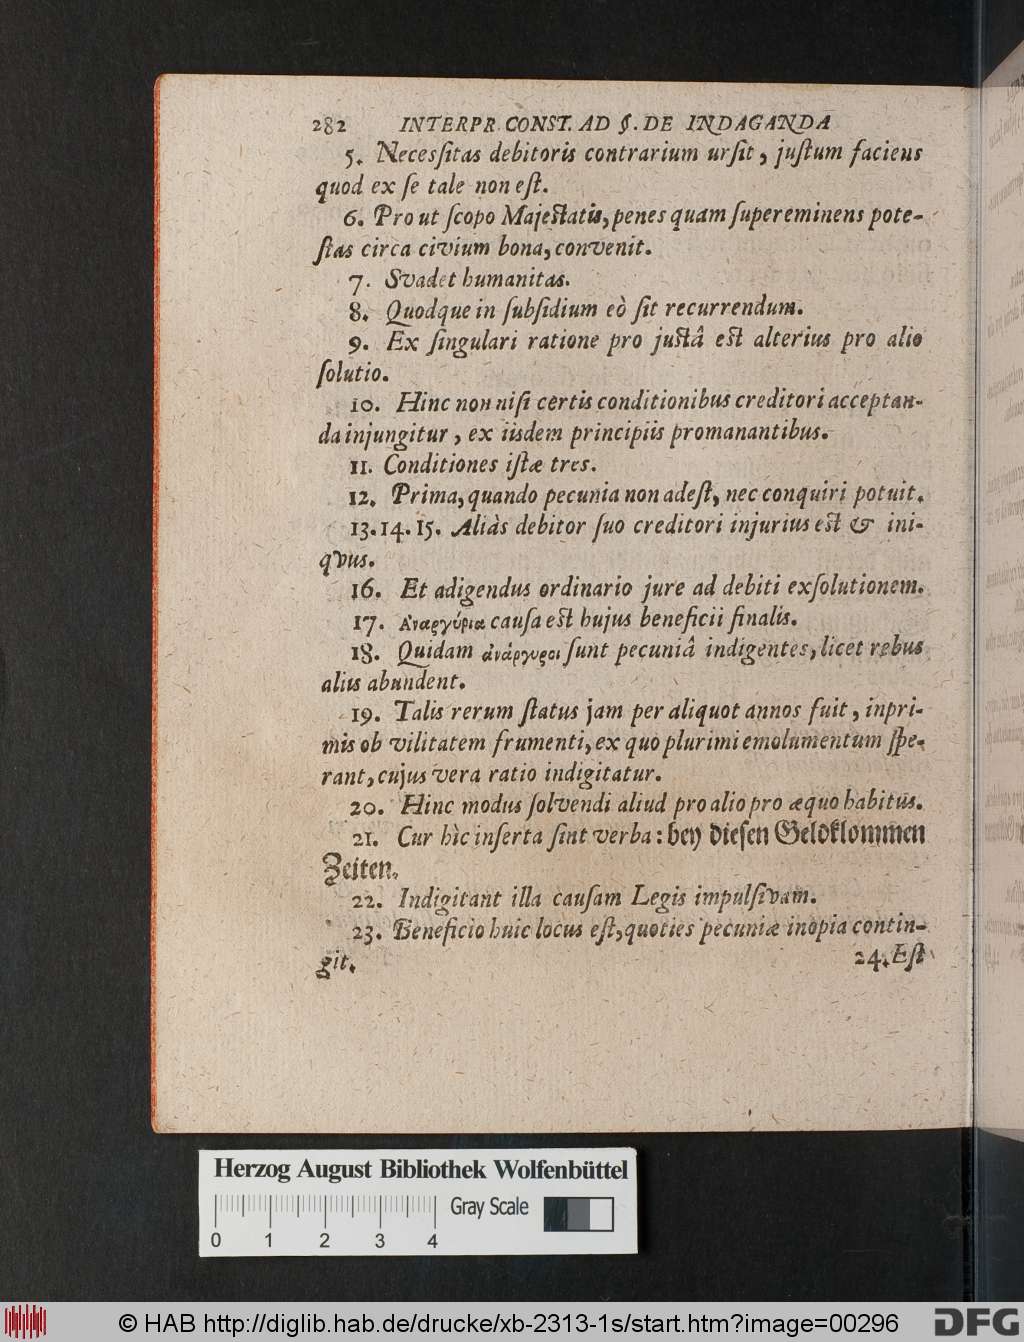 282 INTERPR. CONST. AD §. DE INDAGANDA
5. Necesſitas debitoris contrarium urſit, juſtum faciens
quod ex ſe tale non eſt.
6. Pro ut ſcopo Majeſtatis, penes quam ſupereminens pote-
ſtas circa civium bona, convenit.
7. Svadet humanitas.
8. Quodque in ſubſidium eò ſit recurrendum.
9. Ex ſingulari ratione pro juſtâ eſt alterius pro alio
ſolutio.
10. Hinc non niſi certis conditionibus creditori acceptan-
da injungitur, ex iisdem principiis promanantibus.
11. Conditiones iſtæ tres.
12. Prima, quando pecunia non adeſt, nec conquiri potuit.
13. 14. 15. Aliàs debitor ſuo creditori injurius eſt & ini-
qvus.
16. Et adigendus ordinario jure ad debiti exſolutionem.
17. Αναργύρια cauſa eſt hujus beneficii finalis.
18. Quidam ἀνάργυροι ſunt pecuniâ indigentes, licet rebus
aliis abundent.
19. Talis rerum ſtatus jam per aliquot annos fuit, inpri-
mis ob vilitatem frumenti, ex quo plurimi emolumentum ſpe-
rant, cujus vera ratio indigitatur.
20. Hinc modus ſolvendi aliud pro alio pro æquo habitus.
21. Cur hìc inſerta ſint verba: bey dieſen Geldklommen
Zeiten.
22. Indigitant illa cauſam Legis impulſivam.
23. Beneficio huic locus eſt, quoties pecuniæ inopia contin-
git.
24. Eſt
Herzog August Bibliothek Wolfenbüttel
Gray Scale
0 1 2 3 4
© HAB http://diglib.hab.de/drucke/xb-2313-1s/start.htm?image=00296
DFG